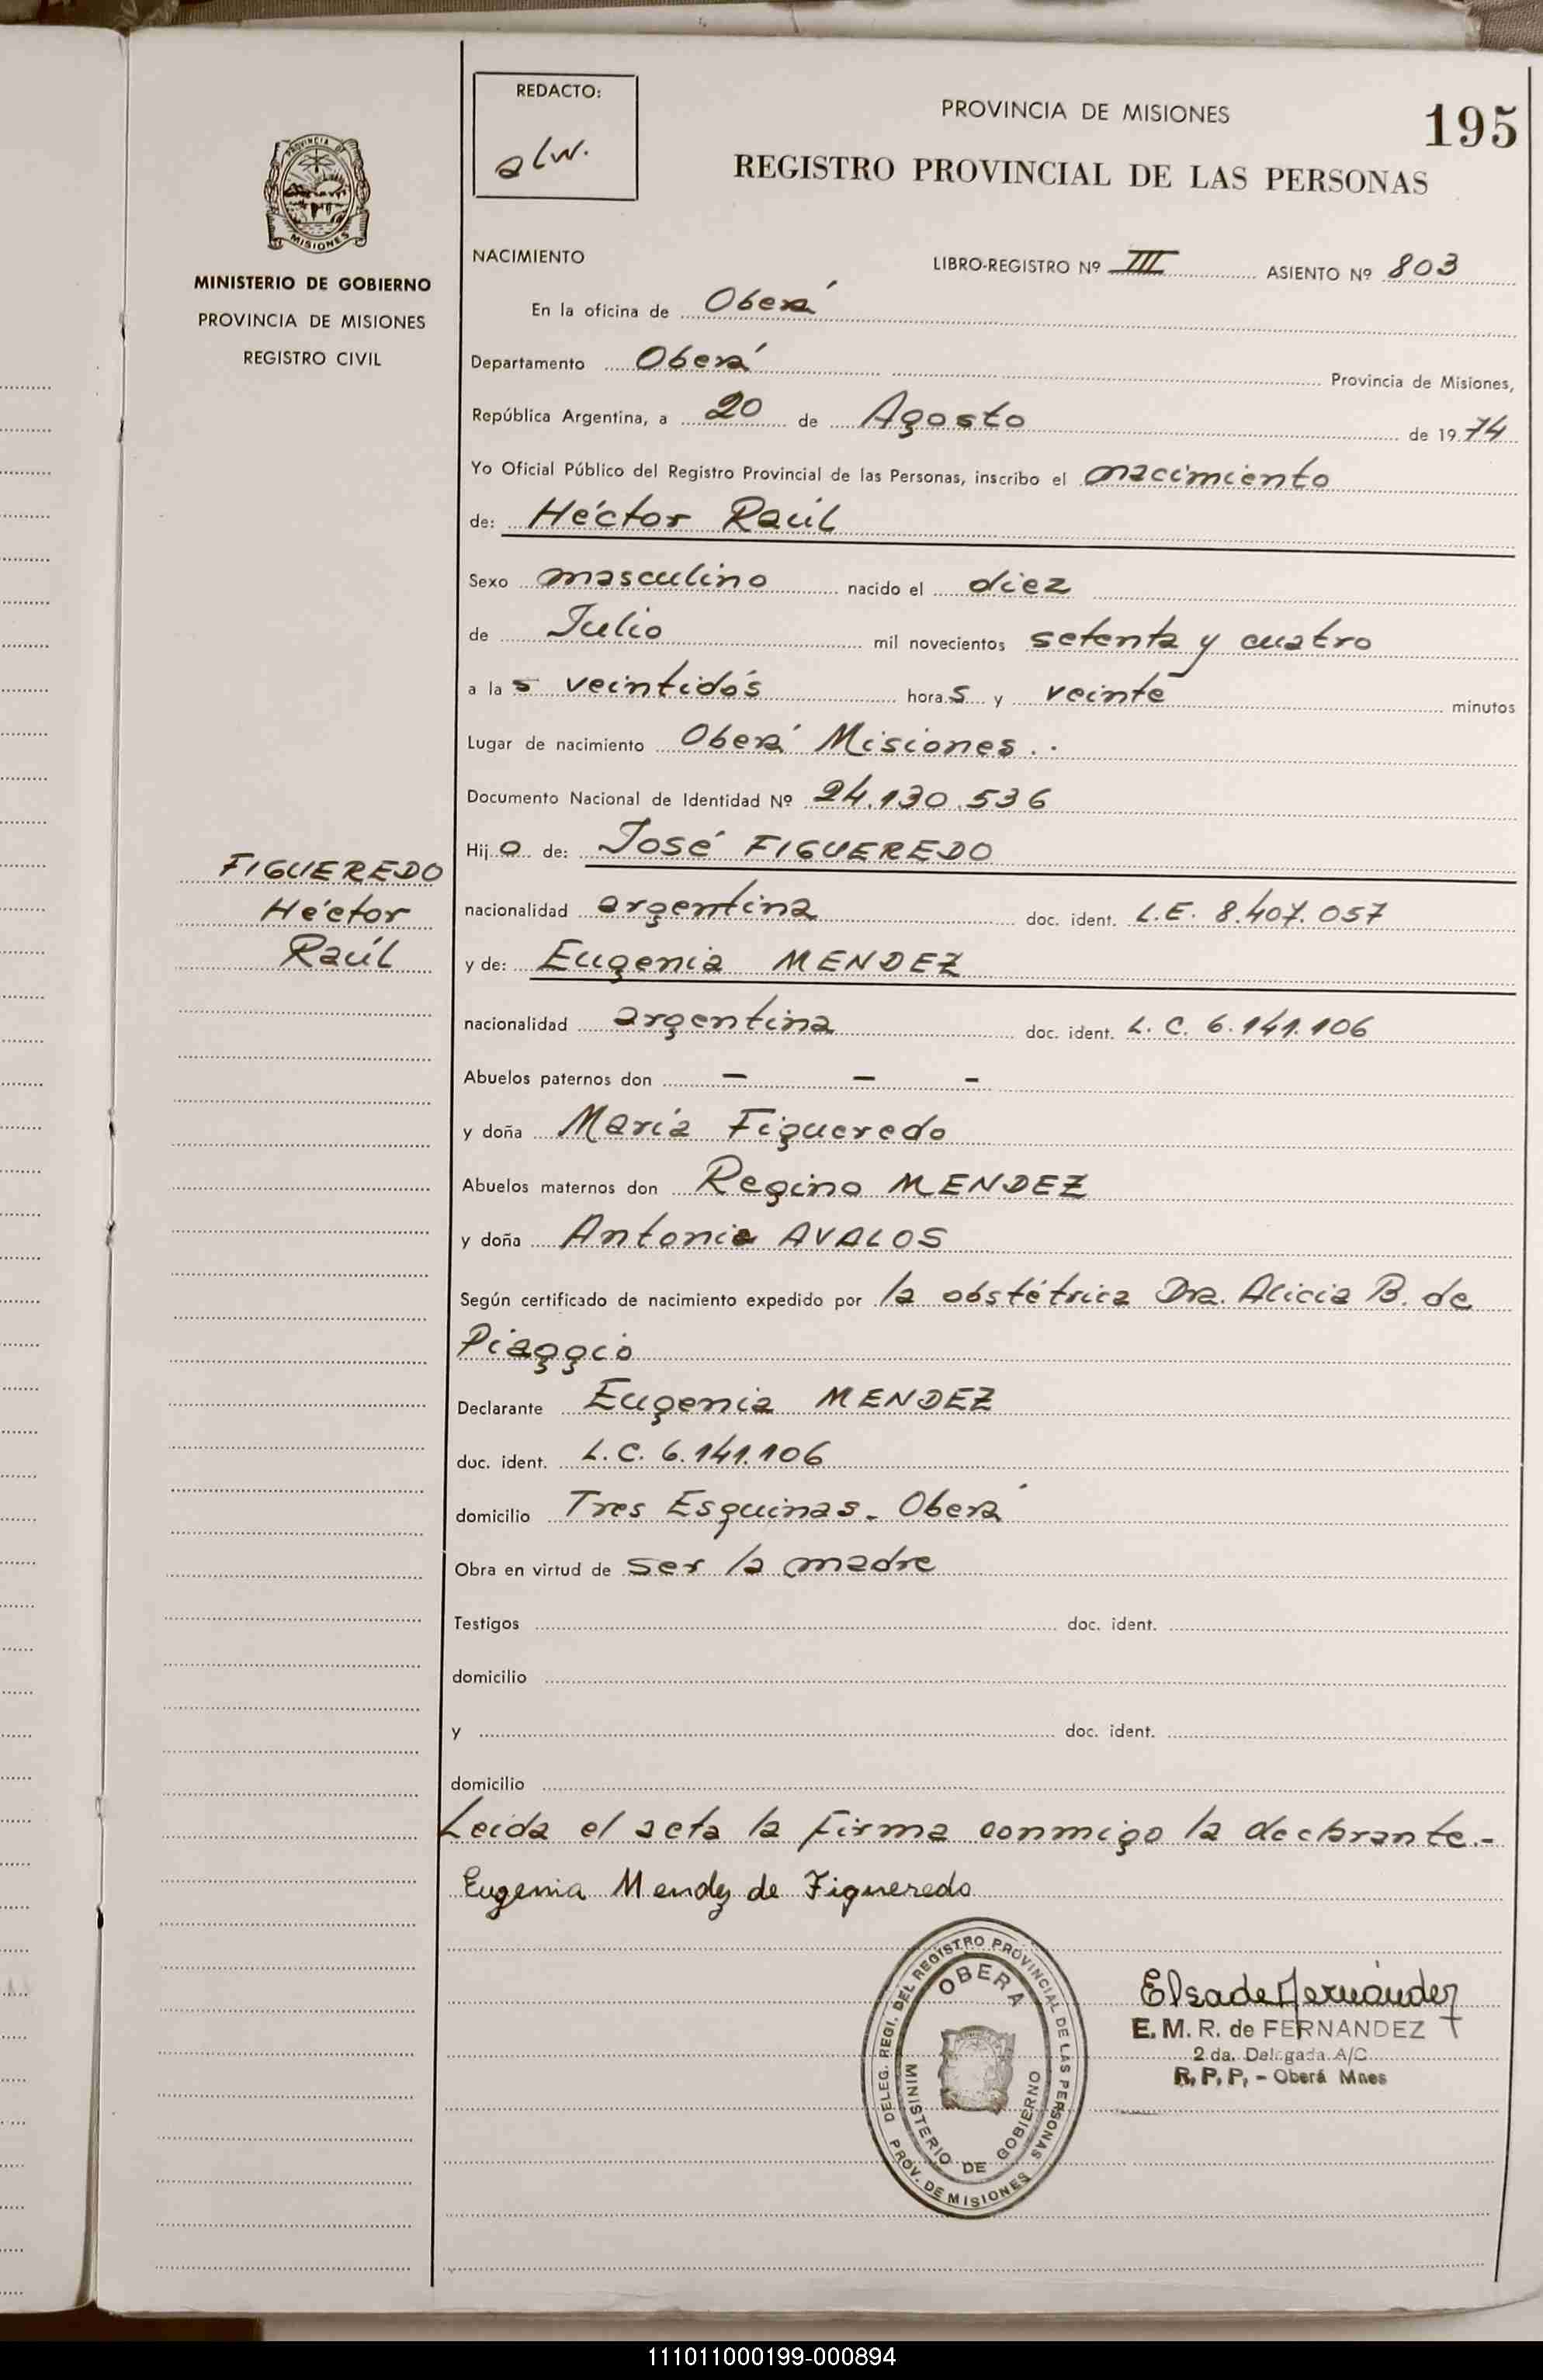 REDACTO:
alw.
PROVINCIA DE MISIONES
195
REGISTRO PROVINCIAL DE LAS PERSONAS
PROVINCIA DE MISIONES
MINISTERIO DE GOBIERNO
PROVINCIA DE MISIONES
REGISTRO CIVIL
NACIMIENTO LIBRO-REGISTRO Nº III ASIENTO Nº 803
En la oficina de Oberá
Departamento Oberá Provincia de Misiones,
República Argentina, a 20 de Agosto de 1974
Yo Oficial Público del Registro Provincial de las Personas, inscribo el nacimiento
de: Héctor Raúl
Sexo masculino nacido el diez
de Julio mil novecientos setenta y cuatro
a las veintidós horas y veinte minutos
Lugar de nacimiento Oberá Misiones..
Documento Nacional de Identidad Nº 24.130.536
Hijo de: José FIGUEREDO
FIGUEREDO
Héctor
Raúl
nacionalidad argentina doc. ident. L.E. 8.407.057
y de: Eugenia MENDEZ
nacionalidad argentina doc. ident. L. C. 6.141.106
Abuelos paternos don — — -
y doña María Figueredo
Abuelos maternos don Regino MENDEZ
y doña Antonia AVALOS
Según certificado de nacimiento expedido por la obstétrica Dra. Alicia B. de
Piaggio
Declarante Eugenia MENDEZ
doc. ident. L. C. 6.141.106
domicilio Tres Esquinas - Oberá
Obra en virtud de ser la madre
Testigos doc. ident.
domicilio
y doc. ident.
domicilio
Leída el acta la firma conmigo la declarante.-
Eugenia Mendez de Figueredo
DELEG. REGI. DEL REGISTRO PROVINCIAL DE LAS PERSONAS
OBERA
MINISTERIO DE GOBIERNO
PROV. DE MISIONES
Elsa de Fernández
E. M. R. de FERNANDEZ
2 da. Delegada A/C
R. P. P. - Oberá Mnes
111011000199-000894